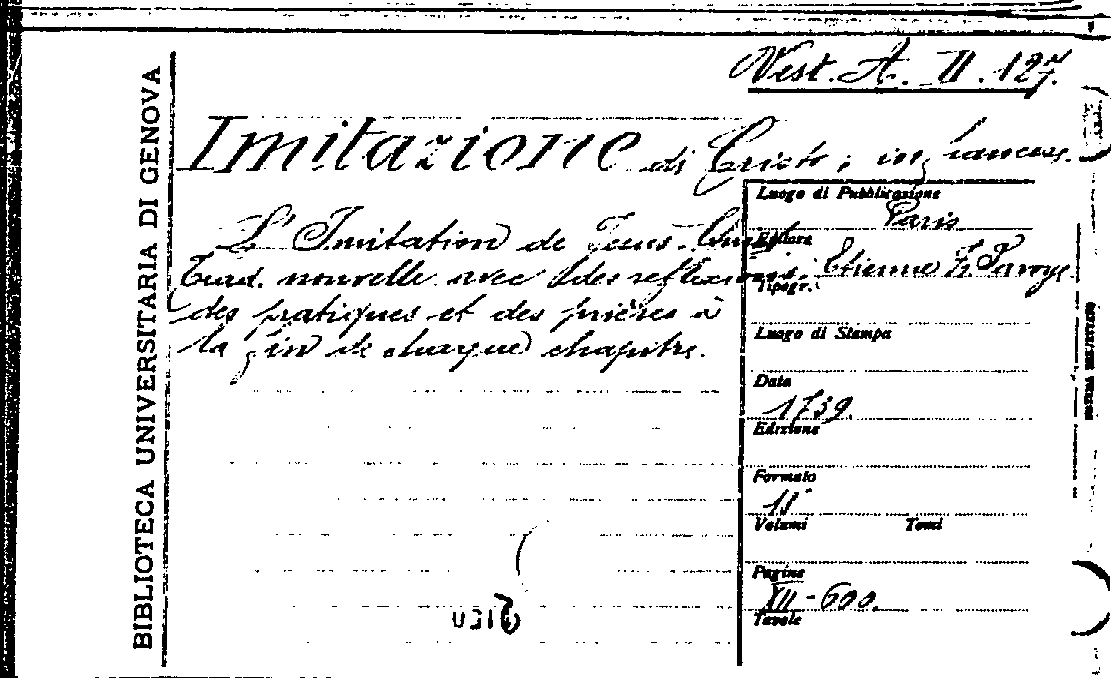 Vest. A. II. 127.
BIBLIOTECA UNIVERSITARIA DI GENOVA
Imitazione di Cristo; in francese.
L'Imitation de Jesus-Christ
Trad. nouvelle avec des reflexions,
des pratiques et des prières à
la fin de chaque chapitre.
Luogo di Pubblicazione
Paris
Editore
Etienne F. Savoye
Tipogr.
Luogo di Stampa
Data
1739.
Edizione
Formato
Volumi Tomi
Pagine
XII-600.
Tavole